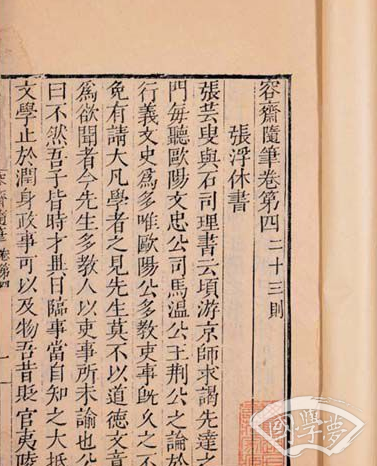 容齋隨筆卷第四 二十三則
張浮休書
張芸叟與石司理書云頃游京師求謁先達之
門每聽歐陽文忠公司馬溫公王荊公之論於
行義文史為多唯歐陽公多教吏事既久之不
免有請大凡學者之見先生莫不以道德文章
為欲聞者今先生多教人以吏事所未諭也公
曰不然吾子皆時才異日臨事當自知之大抵
文學止於潤身政事可以及物吾昔貶官夷陵
國學夢